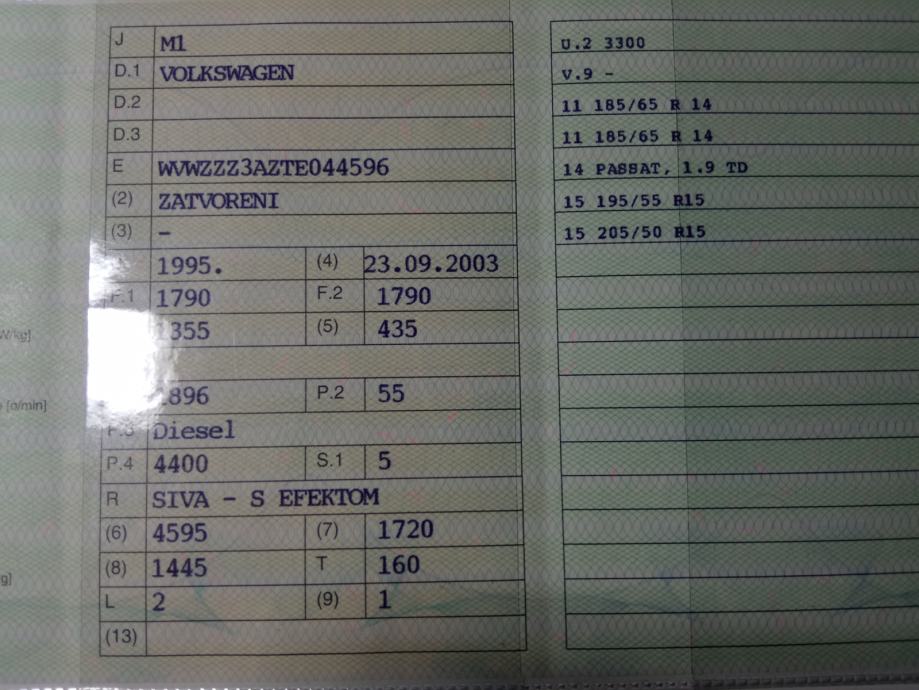 J M1
D.1 VOLKSWAGEN
D.2
D.3
E WVWZZZ3AZTE044596
(2) ZATVORENI
(3) –
1995. (4) 23.09.2003
F.1 1790 F.2 1790
1355 (5) 435
1896 P.2 55
P.3 Diesel
P.4 4400 S.1 5
R SIVA – S EFEKTOM
(6) 4595 (7) 1720
(8) 1445 T 160
L 2 (9) 1
(13)
U.2 3300
V.9 –
11 185/65 R 14
11 185/65 R 14
14 PASSAT, 1.9 TD
15 195/55 R15
15 205/50 R15
W/kg]
[o/min]
g]